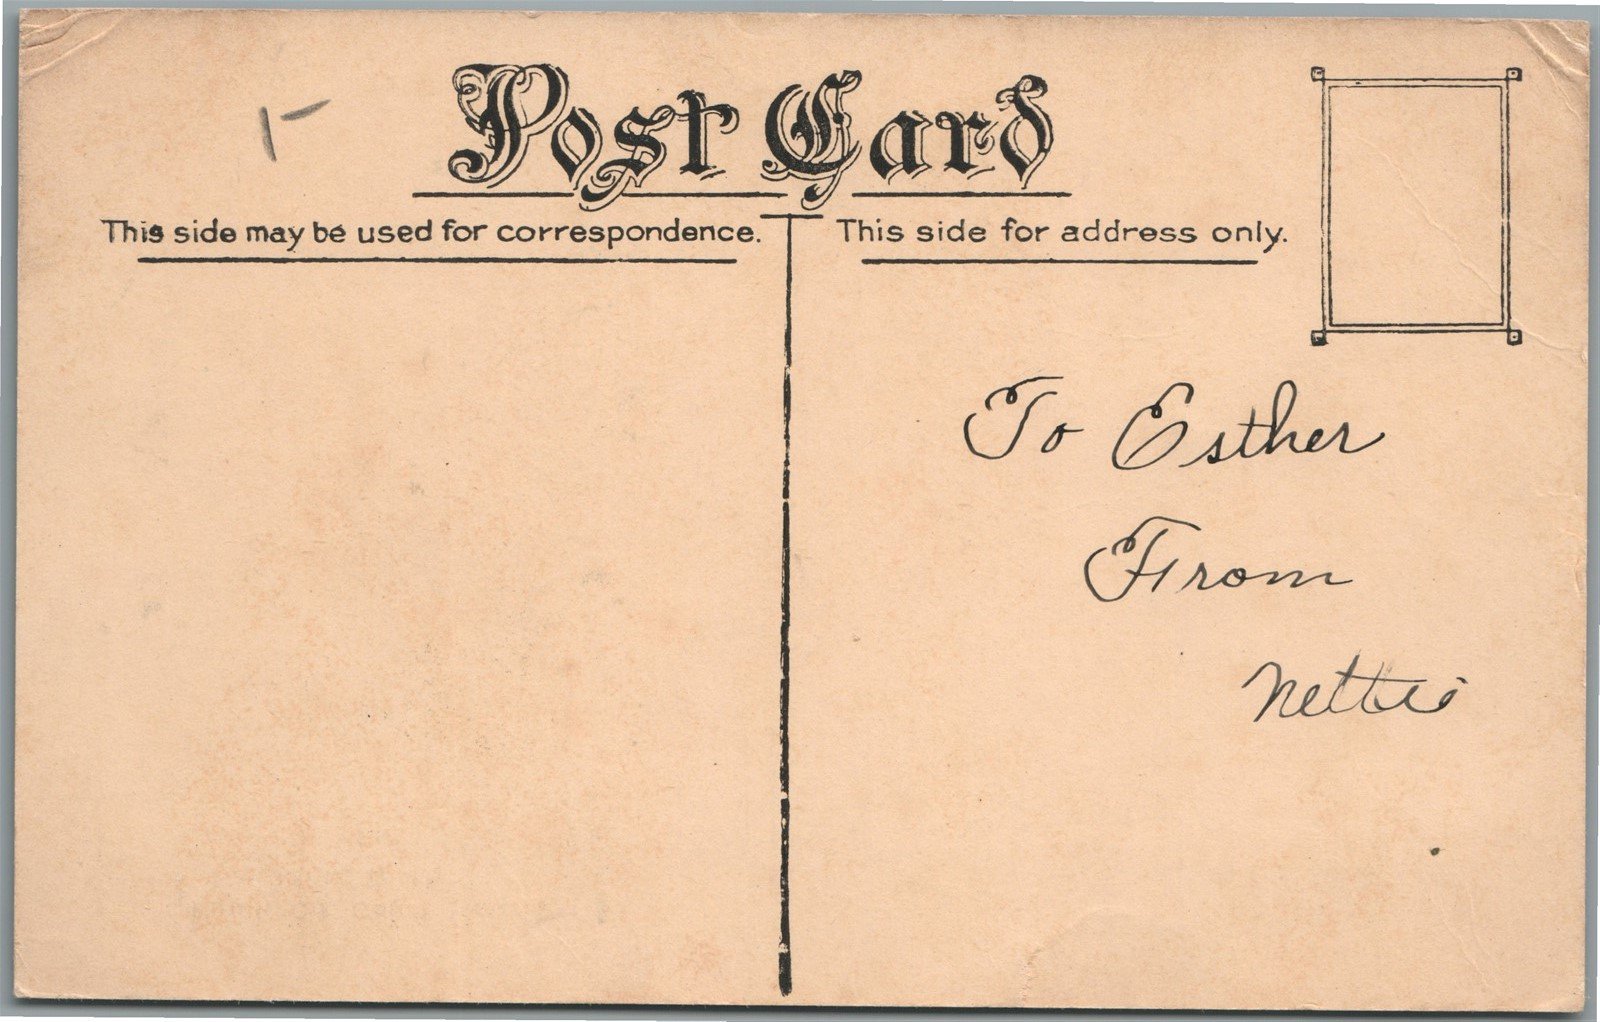 Post Card
This side may be used for correspondence.
This side for address only.
To Esther
From
Nettie